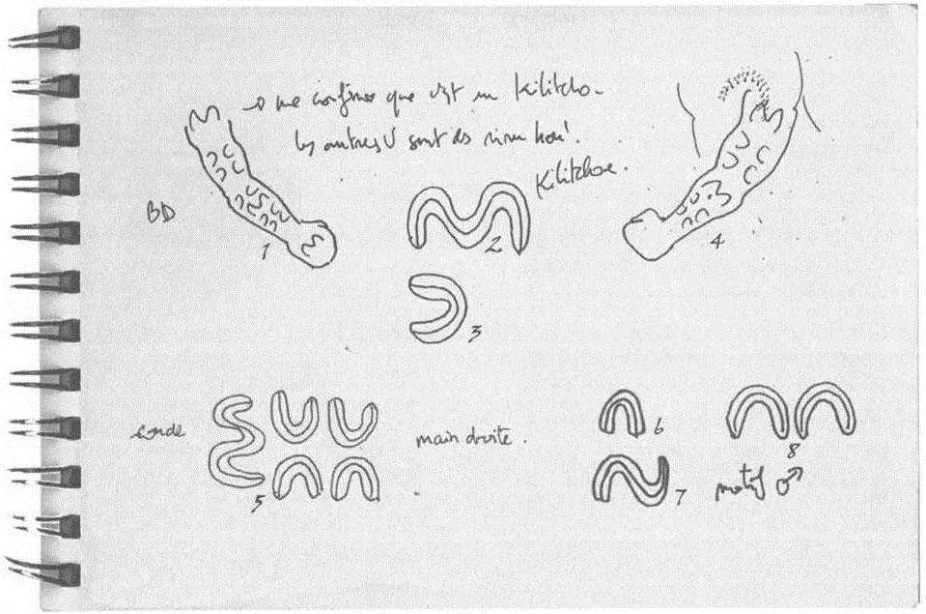 me confirme que c'est un Kilitcho.
les autres U sont des
Kilitchoe.
BD
1
2
4
3
coude
main droite.
6
8
5
7
motif ♂